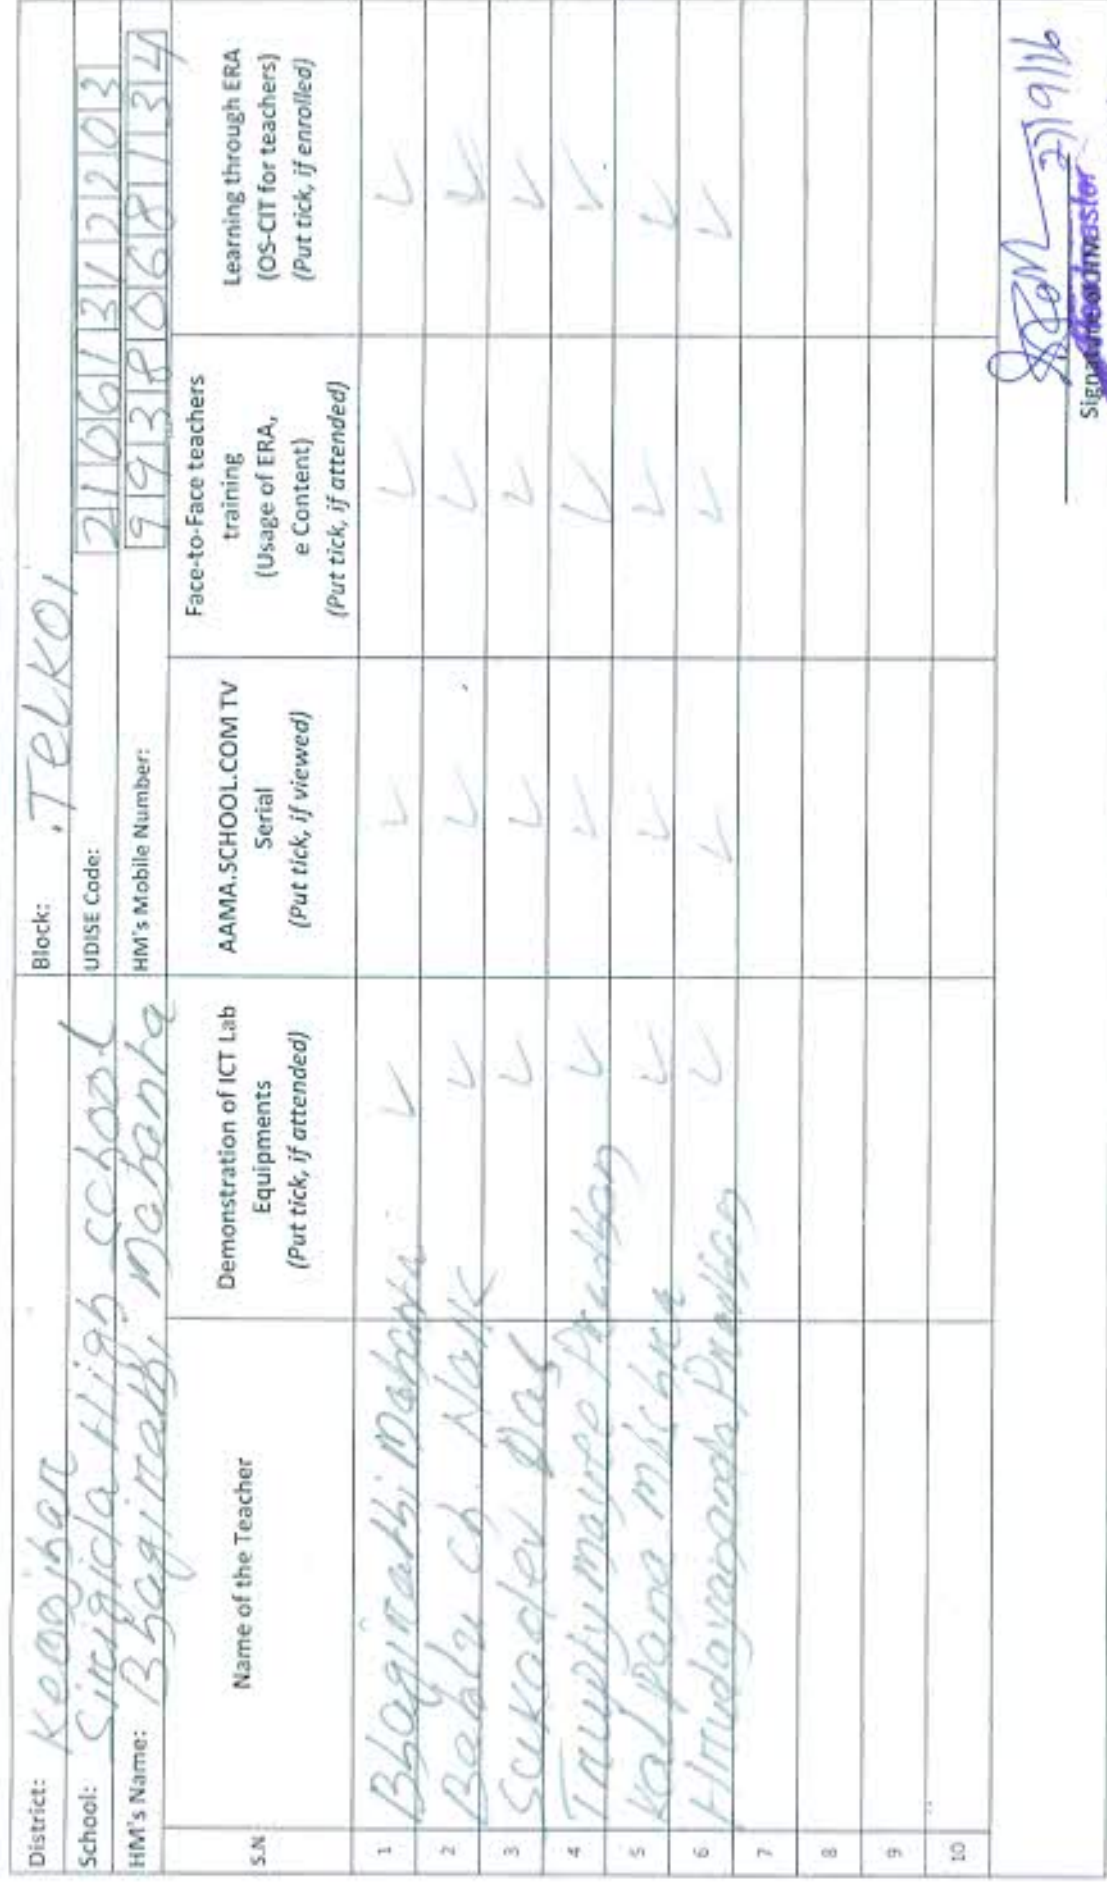 District: Keonjhar Block: TELKOI
School: Sirigida High School UDISE Code: 21061312203
HM's Name: Bhagirathi Mahanta HM's Mobile Number: 9938068134
S.N Name of the Teacher Demonstration of ICT Lab Equipments (Put tick, if attended) AAMA.SCHOOL.COM TV Serial (Put tick, if viewed) Face-to-Face teachers training (Usage of ERA, e Content) (Put tick, if attended) Learning through ERA (OS-CIT for teachers) (Put tick, if enrolled)
1 Bhagirathi Mahanta ✓ ✓ ✓ ✓
2 Bablu Ch. Naik ✓ ✓ ✓ ✓
3 Sukadev Das ✓ ✓ ✓ ✓
4 Pradhan ✓ ✓ ✓ ✓
5 Kalpana Mishra ✓ ✓ ✓ ✓
6 Hrudayananda Pradhan ✓ ✓ ✓ ✓
7
8
9
10
27/9/16
Headmaster